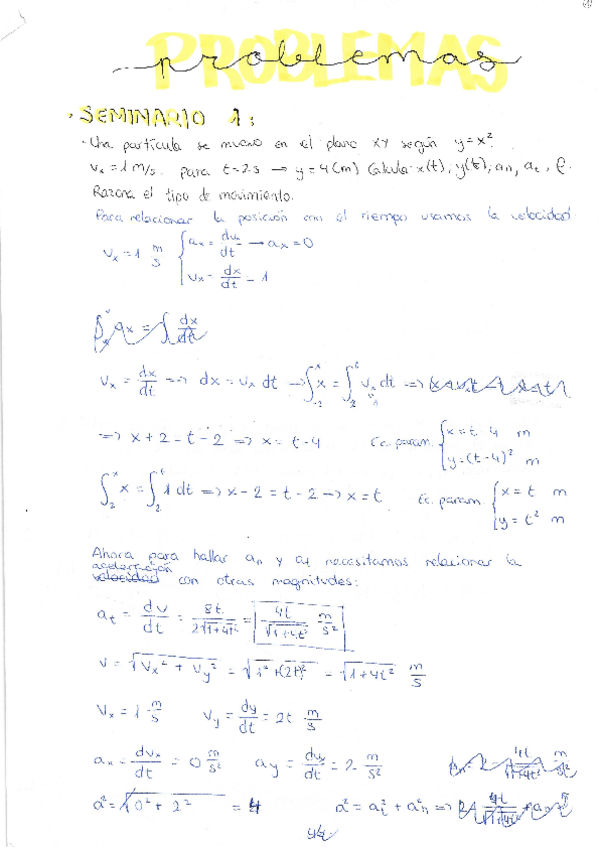 PROBLEMAS
problemas
· SEMINARIO 1:
· Una partícula se mueve en el plano XY según y=x².
vₓ = 1 m/s. para t=2s → y=4(m) Calcula: x(t), y(t), aₙ, aₜ, ρ.
Razona el tipo de movimiento.
Para relacionar la posición con el tiempo usamos la velocidad:
vₓ = 1 m/s { aₓ = dvₓ/dt → aₓ = 0
vₓ = dx/dt = 1
vₓ = dx/dt => dx = vₓ dt → ∫₋₂ˣ x = ∫₂ᵗ vₓ dt =>
=> x + 2 = t - 2 => x = t - 4 Ec. param. { x = t - 4 m
y = (t-4)² m
∫₂ˣ x = ∫₂ᵗ 1 dt => x - 2 = t - 2 → x = t Ec. param. { x = t m
y = t² m
Ahora para hallar aₙ y aₜ necesitamos relacionar la
aceleración
velocidad con otras magnitudes:
aₜ = dv/dt = 8t/2√1+4t² = 4t/√1+4t² m/s²
v = √vₓ² + v_y² = √1² + (2t)² = √1+4t² m/s
vₓ = 1 m/s v_y = dy/dt = 2t m/s
aₓ = dvₓ/dt = 0 m/s² a_y = dvₓ/dt = 2 m/s²
a² = √0² + 2² = 4 a² = aₜ² + aₙ² =>